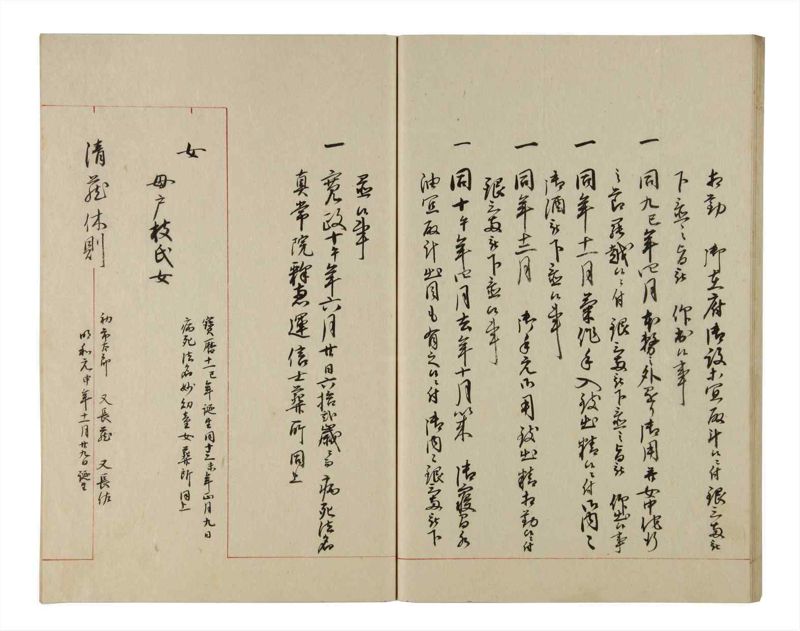 相勤 御在府御設等宜取斗候ニ付銀三両被
下置之旨被 仰出候事
一 同九巳年四月 御用并女中
候ニ付 銀三両被下置之旨被 仰出候事
一 同年十一月 菊作手入致出精候ニ付御内々
御酒被下置候事
一 同年十二月 御手元御用致出精相勤候ニ付
銀三両被下置候事
一 同十午年四月去年十月以来 御寝
油宜取計 目も有之候ニ付御内々銀三両被下
置候事
一 寛政十午年六月廿日六拾弐歳ニ而病死法名
真常院釈恵運信士葬所同上
女
母戸枝氏女
宝暦十一巳年誕生同十三未年正月九日
病死法名妙幻童女葬所同上
清蔵休則
初市太郎 又長蔵 又長佐
明和元申年十一月廿九日誕生